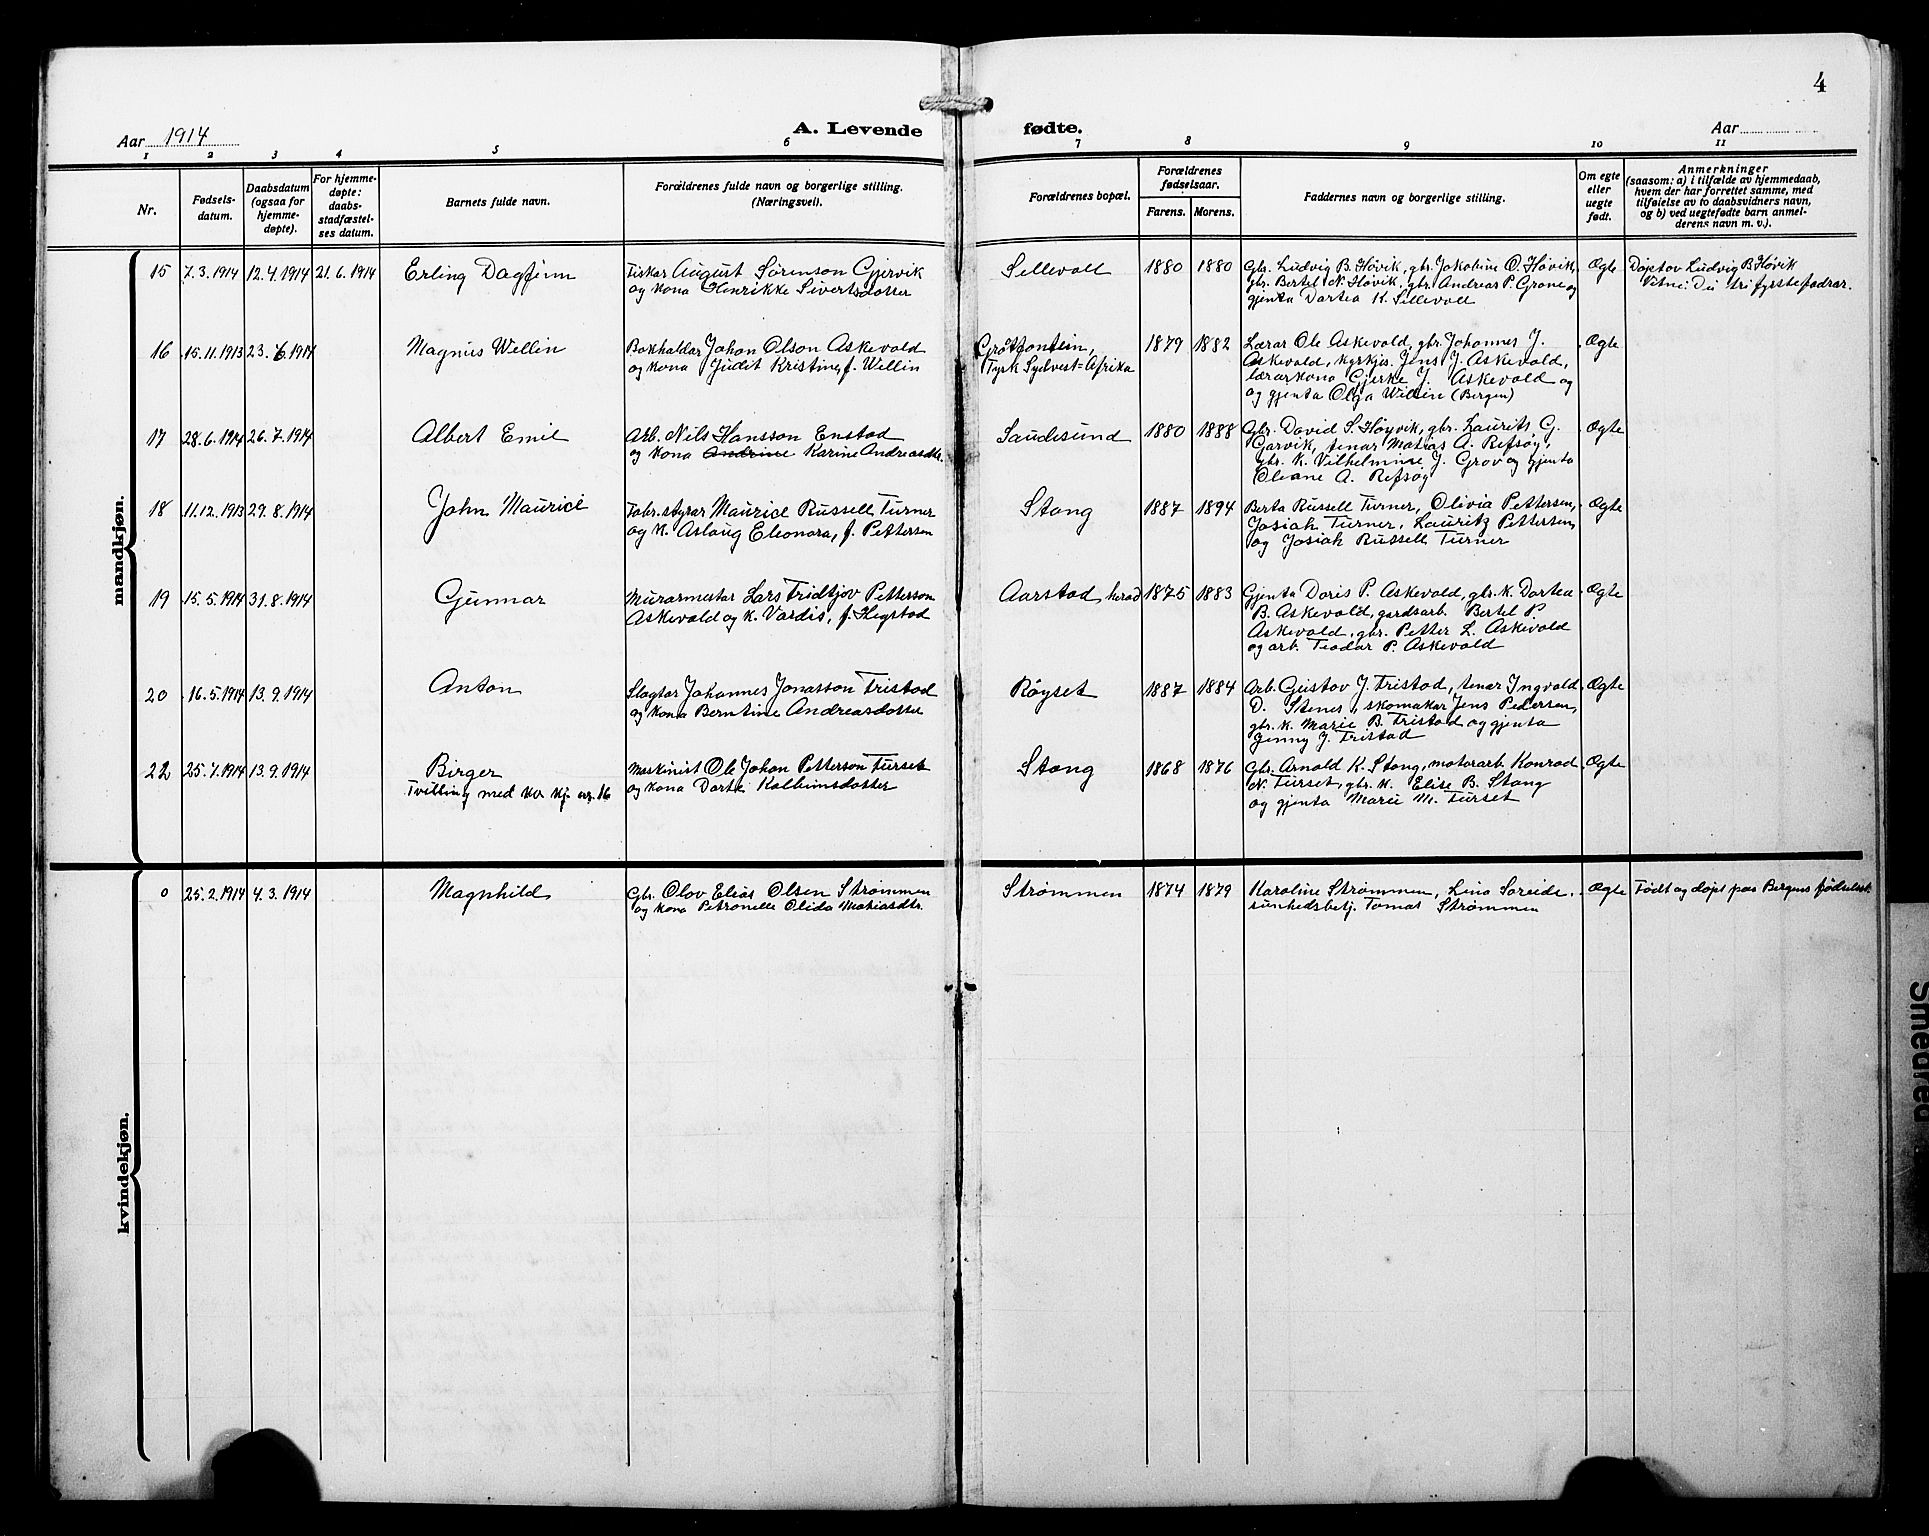 4
Aar 1914
A. Levende
fødte.
Aar
1 2 3 4 5 6 7 8 9 10 11
Nr.
Fødsels-
datum.
Daabsdatum
(ogsaa for
hjemme-
døpte).
For hjemme-
døpte:
daabs-
stadfæstel-
ses datum.
Barnets fulde navn.
Forældrenes fulde navn og borgerlige stilling.
(Næringsvei).
Forældrenes bopæl.
Forældrenes
fødselsaar.
Farens. Morens.
Faddernes navn og borgerlige stilling.
Om egte
eller
uegte
født.
Anmerkninger
(saasom: a) i tilfælde av hjemmedaab,
hvem der har forrettet samme, med
tilføielse av to daabsvidners navn,
og b) ved uegtefødte barn anmel-
derens navn m. v.).
mandkjøn.
15 7.3.1914 12.4.1914 21.6.1914 Erling Dagfinn
Fiskar August Sørenson Gjervik
og kona Henrikke Sivertsdotter
Sellevoll 1880 1880
Gbr. Ludvig B. Høvik, gbr. Jakobine O. Høvik,
gbr. Bertel N. Høvik, gbr. Andreas P. Grane og
gjenta Dortea K. Sellevoll
Ægte
Døypt av Ludvig B. Høvik
Vitne: Dei tri fyrste fadrar.
16 15.11.1913 23.6.1914 Magnus Wellin
Bokhaldar Johan Olson Askevold
og kona Judit Kristine, f. Wellin
Grøtfontein,
Tysk Sydvest=Afrika
1879 1882
Lærar Ole Askevold, gbr. Johannes J.
Askevold, kyrkjes. Jens J. Askevold,
lærarkona Gjerke J. Askevold og
og gjenta Olga Wellin (Bergen)
Ægte
17 28.6.1914 26.7.1914 Albert Emil
Arb. Nils Hansson Enstad
og kona Andrine Karine Andreasdtr.
Saudesund 1880 1888
Gbr. David S. Høyvik, gbr. Laurits G.
Gjørvik, tenar Matias A. Refsøy,
gbr. k. Vilhelmine J. Grov og gjenta
Oleane A. Refsøy
Ægte
18 11.12.1913 29.8.1914 John Maurice
Fabr.styrar Maurice Russell Turner
og k. Aslaug Eleonora, f. Pettersen
Stang 1887 1894
Berta Russell Turner, Olivia Pettersen,
Josiah Turner, Lauritz Pettersen,
og Josiah Russell Turner
Ægte
19 15.5.1914 31.8.1914 Gunnar
Murarmestar Lars Fridtjov Petterson
Askevold og k. Vardis, f. Hegstad
Aarstad herad 1875 1883
Gjenta Doris P. Askevold, gbr. k. Dortea
B. Askevold, gardsarb. Bertel P.
Askevold, gbr. Petter L. Askevold
og arb. Teodor P. Askevold
Ægte
20 16.5.1914 13.9.1914 Anton
Slagtar Johannes Jonasson Tristad
og kona Berntine Andreasdotter
Røyset 1887 1884
Arb. Gustav J. Tristad, tenar Ingvald
D. Stenes, skomakar Jens Pedersen,
gbr. k. Marie B. Tristad og gjenta
Jenny J. Tristad
Ægte
22 25.7.1914 13.9.1914 Birger
Tvilling med kv. kj. nr. 16
Maskinist Ole Johan Petterson Furset
og kona Dorte Kolbeinsdotter
Stang 1868 1876
Gbr. Arnold K. Stang, motorarb. Konrad
N. Furset, gbr. k. Elise B. Stang
og gjenta Marie M. Furset
Ægte
kvindekjøn.
0 25.2.1914 4.3.1914 Magnhild
Gbr. Olov Elias Olsen Strømmen
og kona Petronelle Olida Matiasdtr.
Strømmen 1874 1879
Karoline Strømmen, Lina Soreide,
sunhedsbetj. Tomas Strømmen
Ægte
Født og døpt paa Bergens fødselsst.
Smedred